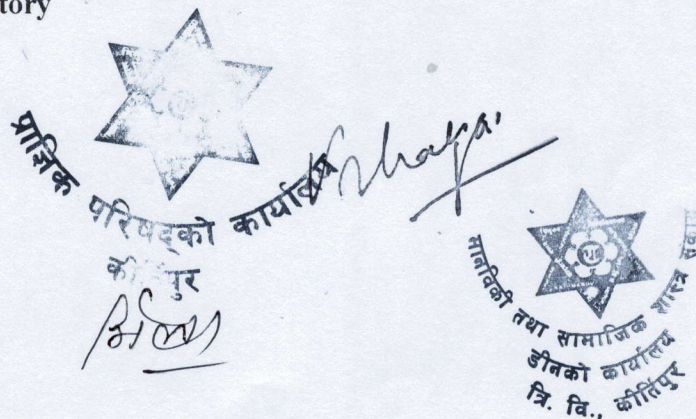 tory
प्राज्ञिक परिषद्को कार्यालय
कीर्तिपुर
मानविकी तथा सामाजिक शास्त्र
डीनको कार्यालय
त्रि. वि., कीर्तिपुर